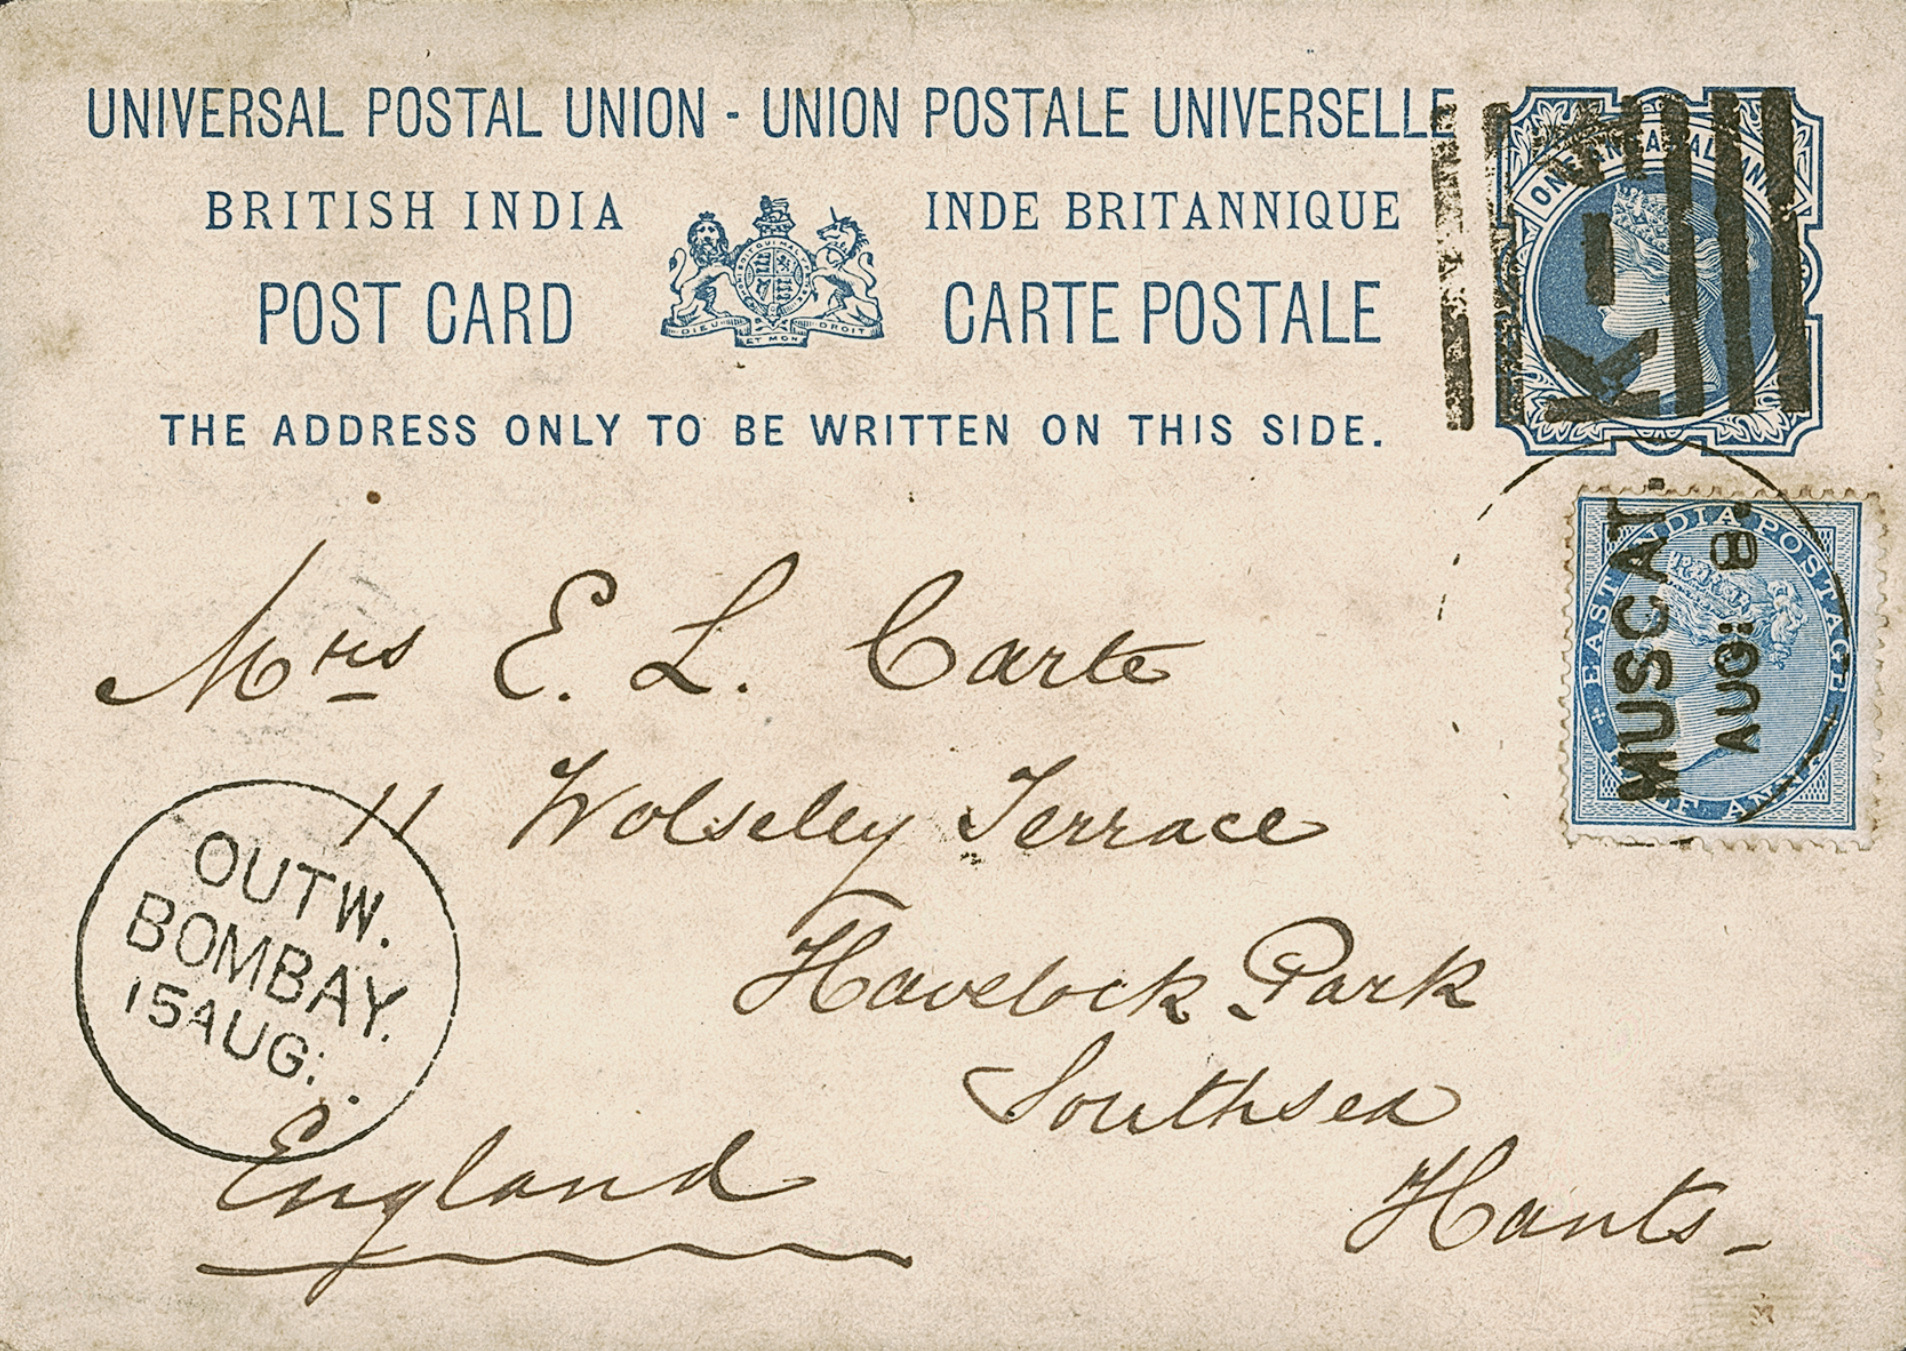 UNIVERSAL POSTAL UNION - UNION POSTALE UNIVERSELLE
BRITISH INDIA
INDE BRITANNIQUE
POST CARD
CARTE POSTALE
DIEU ET MON DROIT
THE ADDRESS ONLY TO BE WRITTEN ON THIS SIDE.
K-
EAST INDIA POSTAGE
ANNA
MUSCAT.
AUG: 8.
Mrs E. L. Carte
11 Wolseley Terrace
Havelock Park
Southsea
Hants -
England
OUTW.
BOMBAY.
15 AUG:.